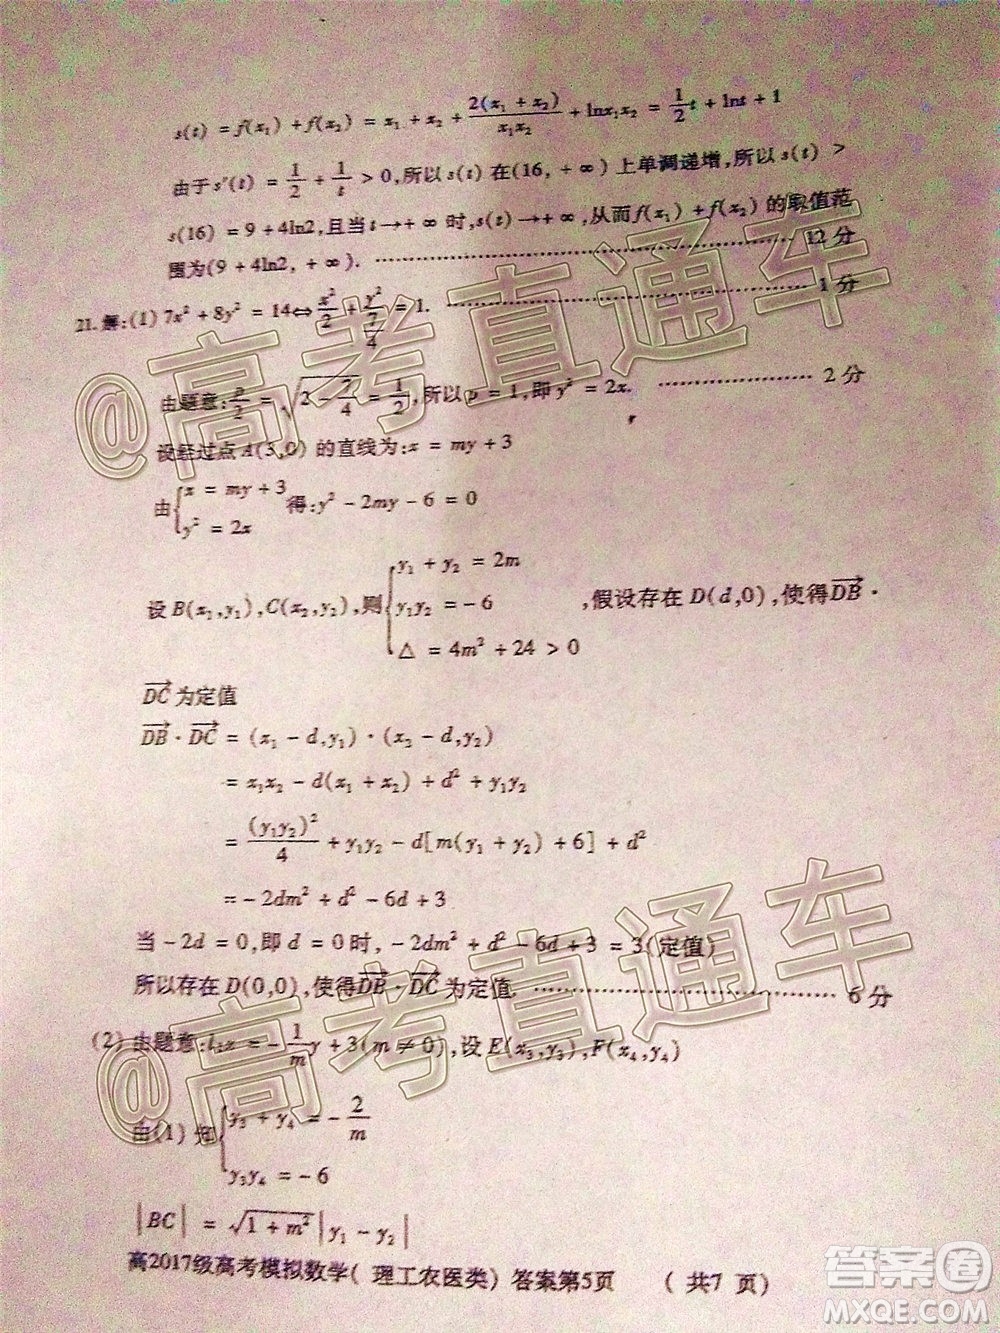 s(t) = f(x₁) + f(x₂) = x₁ + x₂ + 2(x₁ + x₂)/x₁x₂ + lnx₁x₂ = 1/2 t + lnt + 1
由于s′(t) = 1/2 + 1/t > 0,所以s(t)在(16, + ∞)上单调递增,所以s(t) >
s(16) = 9 + 4ln2,且当t→+ ∞时,s(t)→+ ∞,从而f(x₁) + f(x₂)的取值范
围为(9 + 4ln2, + ∞). ………………………… 12分
21.解:(1) 7x² + 8y² = 14⇔x²/2 + y²/(7/4) = 1. ………………………… 1分
由题意:p/2 = √(2 - 7/4) = 1/2,所以p = 1,即y² = 2x. ……………… 2分
设经过点A(3,0)的直线为:x = my + 3
由{x = my + 3
y² = 2x
得:y² - 2my - 6 = 0
设B(x₁,y₁),C(x₂,y₂),则{y₁ + y₂ = 2m
y₁y₂ = - 6
△ = 4m² + 24 > 0
,假设存在D(d,0),使得DB→ ·
DC→为定值
DB→ · DC→ = (x₁ - d,y₁) · (x₂ - d,y₂)
= x₁x₂ - d(x₁ + x₂) + d² + y₁y₂
= (y₁y₂)²/4 + y₁y₂ - d[m(y₁ + y₂) + 6] + d²
= - 2dm² + d² - 6d + 3
当 - 2d = 0,即d = 0时, - 2dm² + d² - 6d + 3 = 3(定值)
所以存在D(0,0),使得DB→ · DC→为定值. ………………………… 6分
(2)由题意:l₂x = - 1/m y + 3(m ≠ 0),设E(x₃,y₃),F(x₄,y₄)
由(1)知{y₃ + y₄ = - 2/m
y₃y₄ = - 6
|BC| = √(1 + m²)|y₁ - y₂|
高2017级高考模拟数学(理工农医类)答案第5页 (共7页)
@高考直通车
@高考直通车
答案圈
MXQE.COM